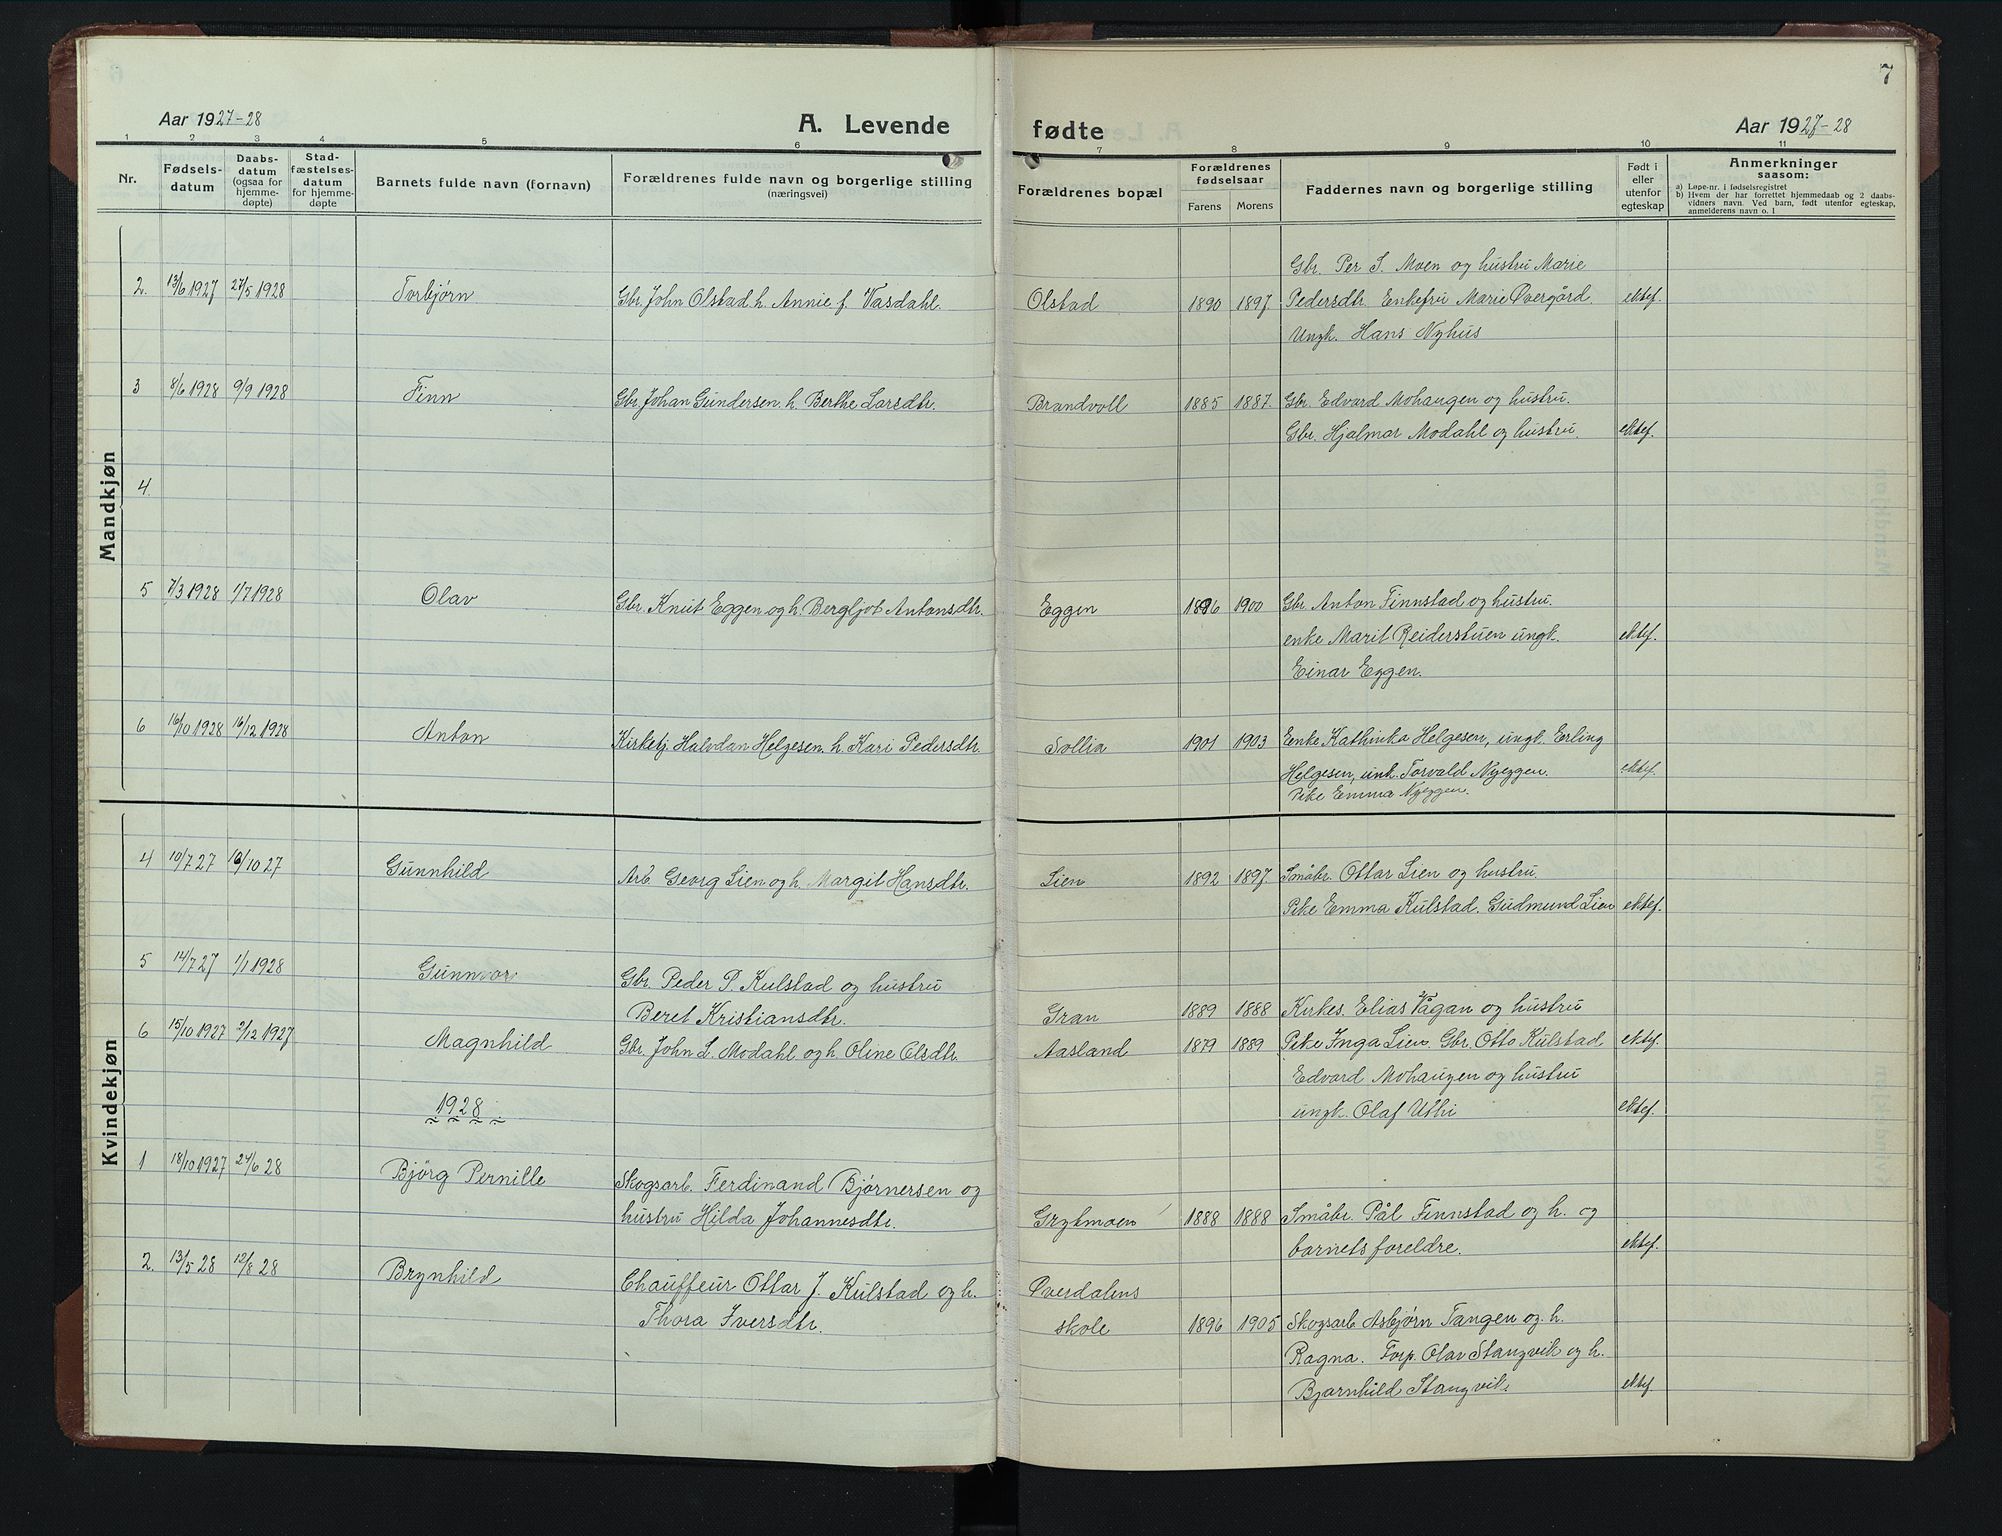 7
Aar 1927-28 A. Levende fødte Aar 1927-28
1 2 3 4 5 6 7 8 9 10 11
Nr. Fødsels- datum Daabs- datum (ogsaa for hjemme- døpte) Stad- fæstelses- datum for hjemme- døpte Barnets fulde navn (fornavn) Forældrenes fulde navn og borgerlige stilling (næringsvei) Forældrenes bopæl Forældrenes fødselsaar Farens Morens Faddernes navn og borgerlige stilling Født i eller utenfor egteskap Anmerkninger saasom:
a) Løpe-nr. i fødselsregistret
b) Hvem der har forrettet hjemmedaab og 2 daabs- vidners navn. Ved barn, født utenfor egteskap, anmelderens navn o. l
Mandkjøn
Gbr. Per S. Moen og hustru Marie
2. 13/6 1927 27/5 1928 Torbjørn Gbr. John Olstad h. Annie f. Vasdahl. Olstad 1890 1897. Pedersdtr. Enkefru Marie Øvergård ektef.
Ungk. Hans Nyhus
3 8/6 1928 9/9 1928 Finn Gbr. Johan Gundersen. h. Berthe Larsdtr. Brandvoll 1885 1887. Gbr. Edvard Mohaugen og hustru.
Gbr. Hjalmar Modahl og hustru. ektef.
4.
5 7/3 1928 1/7 1928 Olav Gbr. Knut Eggen og h. Bergljot Antonsdtr. Eggen 1896 1900 Gbr. Anton Finnstad og hustru.
enke Marit Reiderstuen ungk. ektef.
Einar Eggen.
6 16/10 1928 16/12 1928 Anton Kirketj. Halvdan Helgesen. h. Kari Pedersdtr. Sollia 1901 1903 Enke Kathinka Helgesen, ungk. Erling
Helgesen, unk. Torvald Nyeggen. ektef.
Pike Emma Nyeggen.
Kvindekjøn
4 10/7 27 /10 27 Gunnhild Arb. Georg Lien og h. Margit Hansdtr. Lien 1892 1897. Småbr. Ottar Lien og hustru.
Pike Emma Kulstad. Gudmund Lien ektef.
5 14/7 27 1/1 1928 Gunnvor Gbr. Peder P. Kulstad og hustru
Beret Kristiansdtr. Gran 1889 1888 Kirkes. Elias Vågan og hustru
6 15/10 1927 2/12 1927 Magnhild Gbr. John L. Modahl og h. Oline Elsdtr. Aasland 1879 1889 Pike Inga Lien. Gbr. Otto Kulstad ektef.
Edvard Mohaugen og hustru
1928 ungk. Olaf Uthi ektef.
1 18/10 1927 24/6 28 Bjørg Pernille Skogsarb. Ferdinand Bjørnersen og
hustru Hilda Johannesdtr. Grytmoen 1888 1888 Småbr. Pål Finnstad og h. og
barnets foreldre. ektef.
2. 13/5 28 12/8 28 Brynhild Chauffeur Ottar J. Kulstad og h. Øverdalens
Thora Iversdtr. skole 1896 1905 Skogsarb. Asbjørn Tangen og. h.
Ragna. Forp. Olav Stangvik og h.
Bjarnhild Stangvik. ektef.